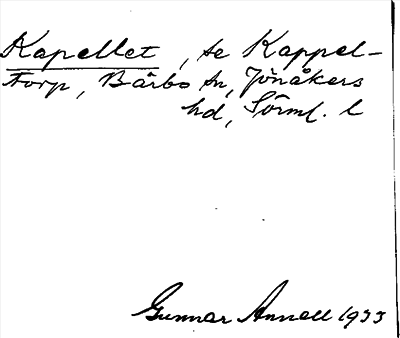 Kapellet, se Kappel-
torp, Bärbo sn, Jönåkers
hd, Sörml. l
Gunnar Annell 1933